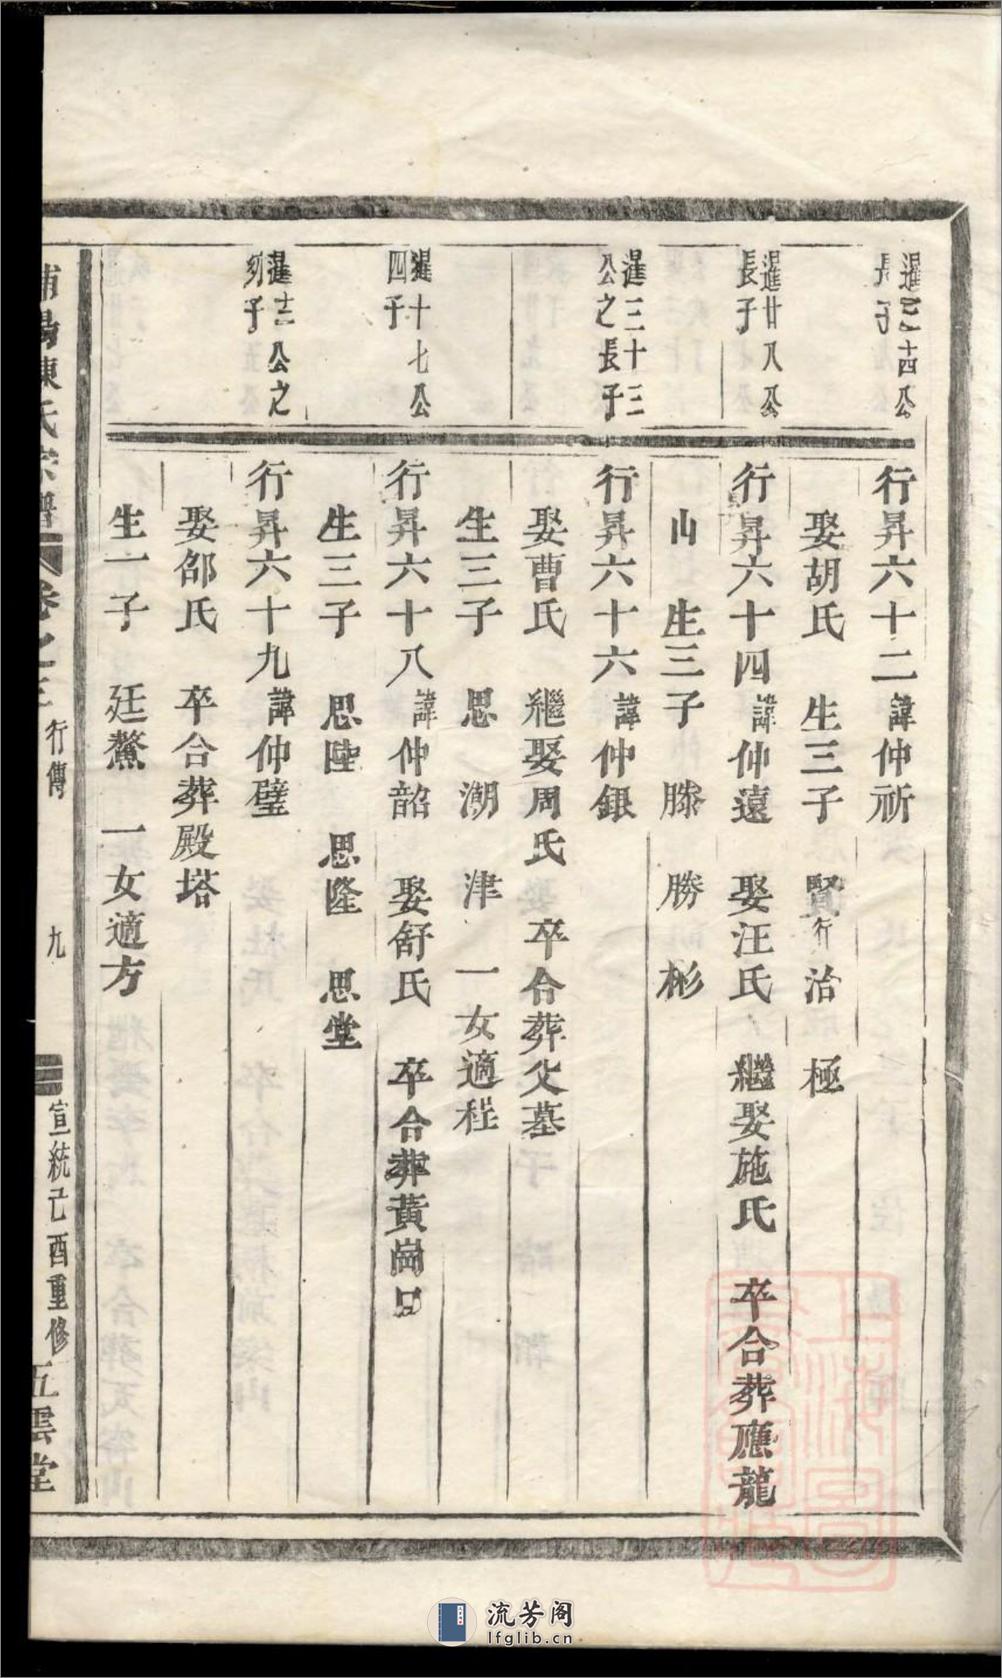 暹二十四公
長子
行昇六十二諱仲祈
娶胡氏 生三子 賢行 治 極
暹廿八公
長子
行昇六十四諱仲遠 娶汪氏 繼娶施氏 卒合葬應龍
山 生三子 滕 勝 彬
暹三十三
公之長子
行昇六十六諱仲銀
娶曹氏 繼娶周氏 卒合葬父墓
生三子 思 潮 津 一女適程
暹十七公
四子
行昇六十八諱仲韶 娶舒氏 卒合葬黃崗口
生三子 思陸 思隆 思堂
暹十二公之
幼子
行昇六十九諱仲璧
娶邵氏 卒合葬殿塔
生一子 廷鰲 一女適方
陳氏宗譜 卷之三 行傳 九 宣統己酉重修 五雲堂
流芳阁
lfglib.cn